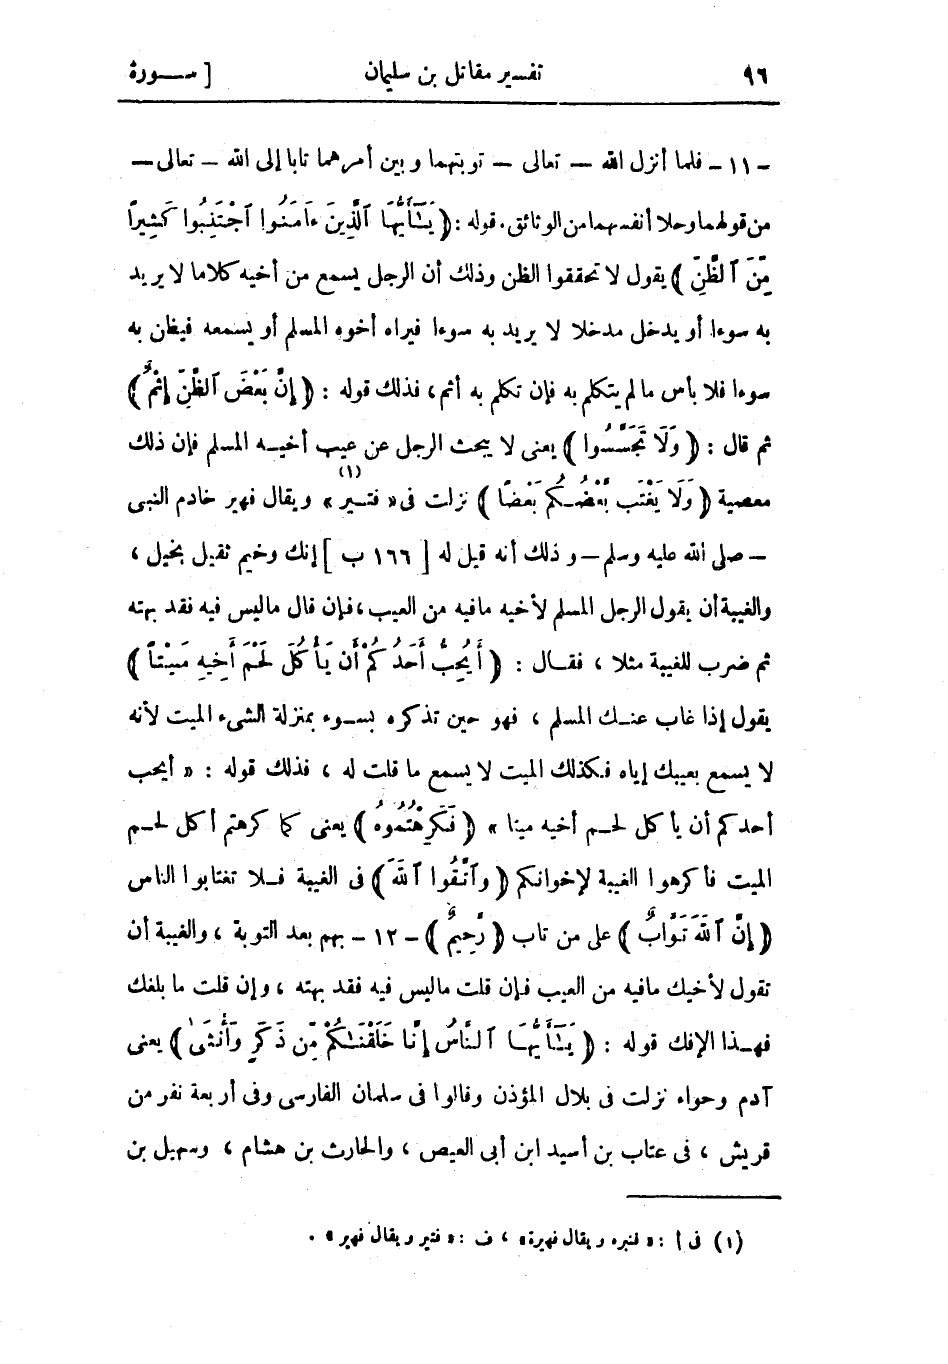 ٩٦ تفسير مقاتل بن سليمان [ ســورة
ـ ١١ ـ فلما أنزل الله — تعالى — توبتهما وبين أمرهما تابا إلى الله — تعالى —
من قولهما وحلا أنفسهما من الوثائق. قوله : ( يَـٰٓأَيُّهَا ٱلَّذِينَ ءَامَنُوا ٱجْتَنِبُوا كَثِيرًا
مِّنَ ٱلظَّنِّ ) يقول لا تحققوا الظن وذلك أن الرجل يسمع من أخيه كلاما لا يريد
به سوءا أو يدخل مدخلا لا يريد به سوءا فيراه أخوه المسلم أو يسمعه فيظن به
سوءا فلا بأس ما لم يتكلم به فإن تكلم به أثم، فذلك قوله : ( إِنَّ بَعْضَ ٱلظَّنِّ إِثْمٌ )
ثم قال : ( وَلَا تَجَسَّسُوا ) يعنى لا يبحث الرجل عن عيب أخيــه المسلم فإن ذلك
معصية ( وَلَا يَغْتَب بَّعْضُـكُم بَعْضًا ) نزلت فى « فتــير (١) » ويقال فهير خادم النبى
— صلى الله عليه وسلم — وذلك أنه قيل له [ ١٦٦ ب ] إنك وخيم ثقيل بخيل ،
والغيبة أن يقول الرجل المسلم لأخيه مافيه من العيب، فإن قال ماليس فيه فقد بهته
ثم ضرب للغيبة مثلا ، فقــال : ( أَيُحِبُّ أَحَدُكُمْ أَن يَأْكُلَ لَحْمَ أَخِيهِ مَيْتًا )
يقول إذا غاب عنــك المسلم ، فهو حين تذكره بســوء بمنزلة الشىء الميت لأنه
لا يسمع بعيبك إياه فكذلك الميت لا يسمع ما قلت له ، فذلك قوله : « أيحب
أحدكم أن يأكل لحــم أخيه ميتا » ( فَكَرِهْتُمُوهُ ) يعنى كما كرهتم أكل لحــم
الميت فأكرهوا الغيبة لإخوانكم ( وَٱتَّقُوا ٱللَّهَ ) فى الغيبة فــلا تغتابوا الناس
( إِنَّ ٱللَّهَ تَوَّابٌ ) على من تاب ( رَّحِيمٌ ) ـ ١٢ ـ بهم بعد التوبة ، والغيبة أن
تقول لأخيك مافيه من العيب فإن قلت ماليس فيه فقد بهته ، وإن قلت ما بلغك
فهــذا الإفك قوله : ( يَـٰٓأَيُّهَا ٱلنَّاسُ إِنَّا خَلَقْنَـٰكُمْ مِّن ذَكَرٍ وَأُنثَىٰ ) يعنى
آدم وحواء نزلت فى بلال المؤذن وقالوا فى سلمان الفارسى وفى أربعة نفر من
قريش ، فى عتاب بن أسيد ابن أبى العيص ، والحارث بن هشام ، وسهيل بن
(١) فى أ : « فنبره ويقال فهيرة» ، ف : « فتير ويقال فهير » .